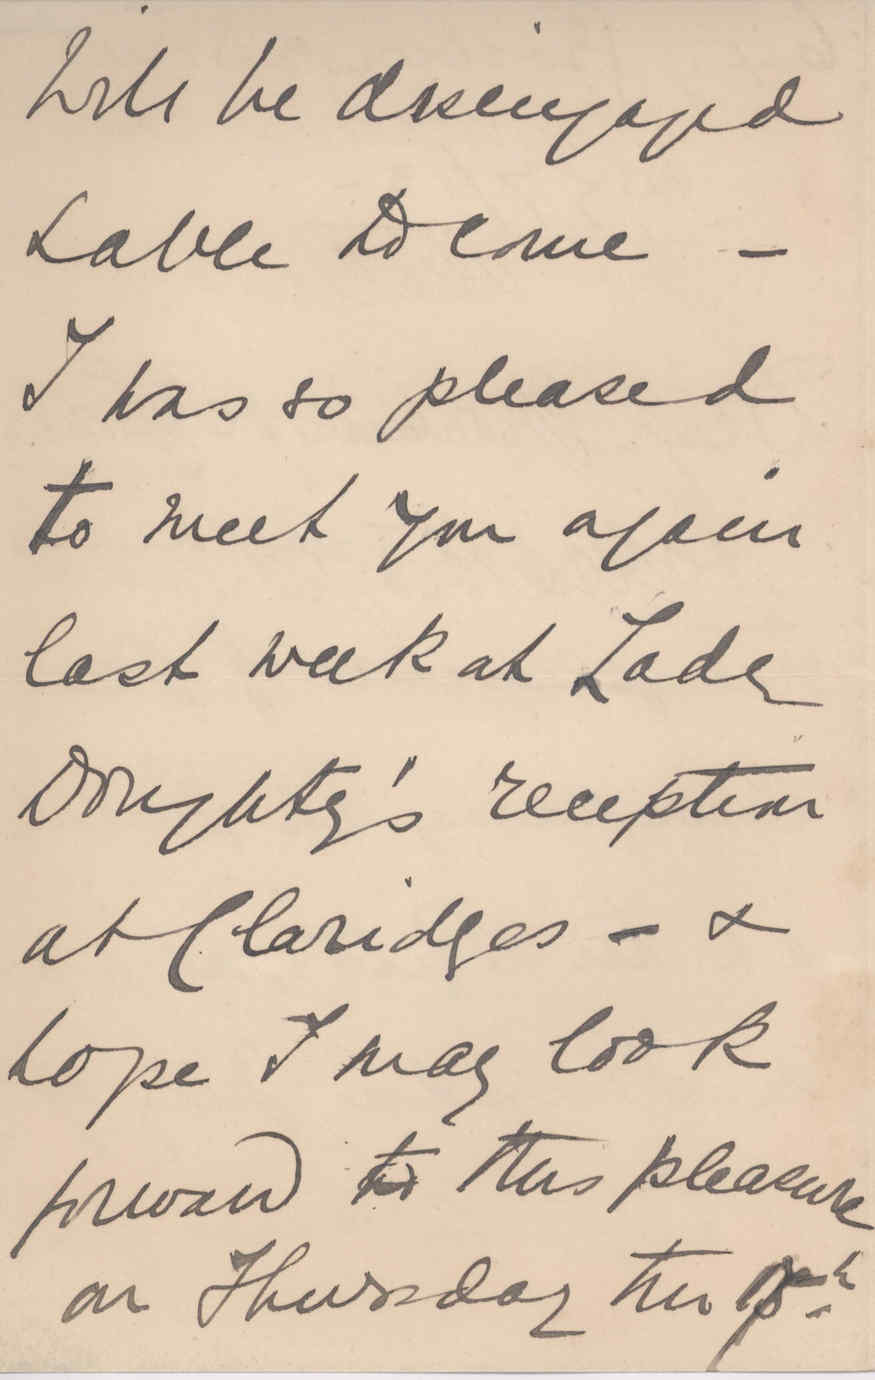 Will be disengaged
& able to come -
I was so pleased
to meet you again
last week at Lady
Doughty's reception
at Claridges - &
hope I may look
forward to this pleasure
on Thursday the